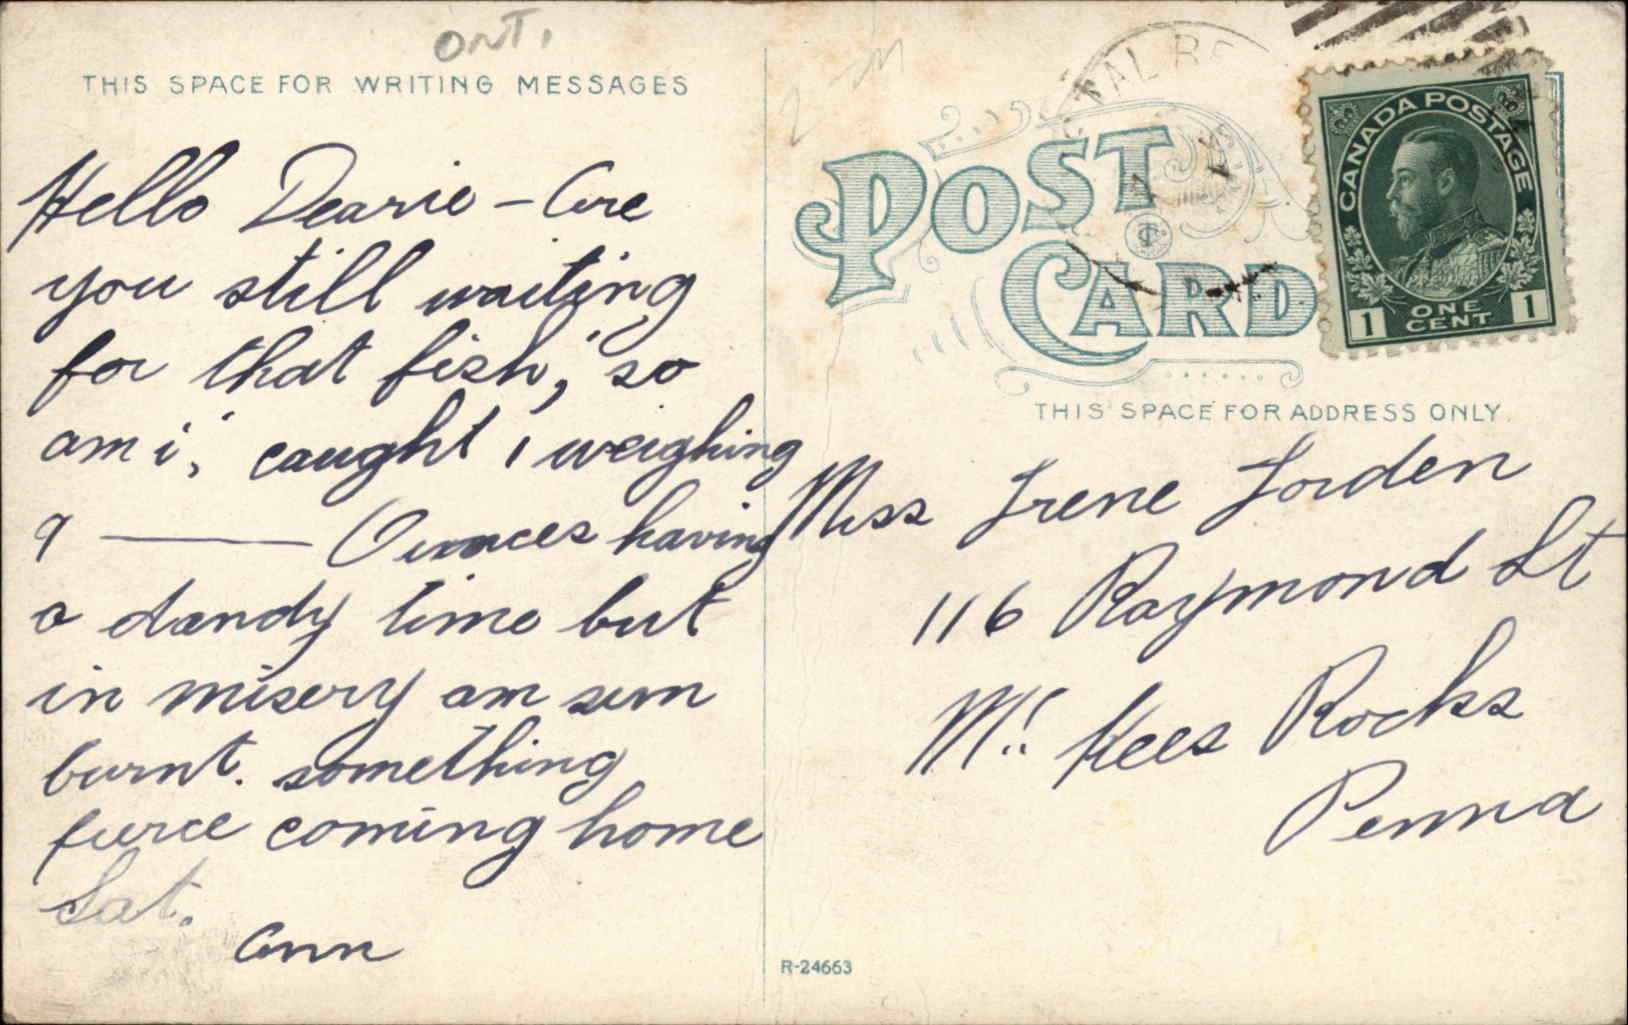 ONT.
THIS SPACE FOR WRITING MESSAGES
Hello Dearie – Are
you still waiting
for that fish, "so
am i", caught 1 weighing
9 —— Ounces having
a dandy time but
in misery am sun
burnt. something
fierce coming home
Sat.
Ann
POST
CARD
CANADA POSTAGE
1 ONE CENT 1
THIS SPACE FOR ADDRESS ONLY
Miss Irene Jorden
116 Raymond St
Mc Kees Rocks
Penna
R-24663